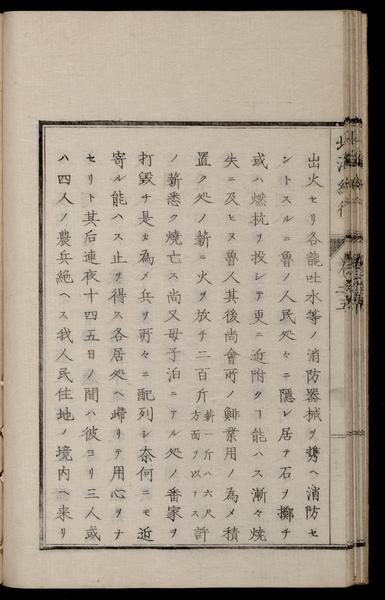 出火セリ各龍吐水等ノ消防器械ヲ携ヘ消防セ
ントスルニ魯ノ人民処々ニ隠レ居テ石ヲ擲チ
或ハ燃杭ヲ投シテ更ニ近附クヿ能ハス漸々焼
失ニ及ヒヌ魯人其後尚會所ノ鯡業用ノ為メ積
置ク処ノ薪ニ火ヲ放チ二百斤薪一斤ハ六尺方面ヲ以テス許
ノ薪悉ク焼亡ス尚又母子泊ニアル処ノ番家ヲ
打毀チ是カ為メ兵ヲ所々ニ配列シ奈何ニモ近
寄ル能ハス止ヲ得ス各居処ヘ帰リテ用心ヲナ
セリト其后連夜十四五日ノ間ハ彼ヨリ三人或
ハ四人ノ農兵絶ヘス我人民住地ノ境内ヘ来リ